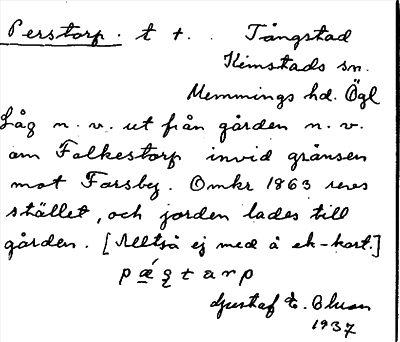 Perstorp. t +. Tångstad
Kimstads sn.
Memmings hd. Ögl
Låg n. v. ut från gården n. v.
om Falkestorp invid gränsen
mot Farsby. Omkr 1863 revs
stället, och jorden lades till
gården. [Alltså ej med å ek-kart.]
Gustaf E.
1937